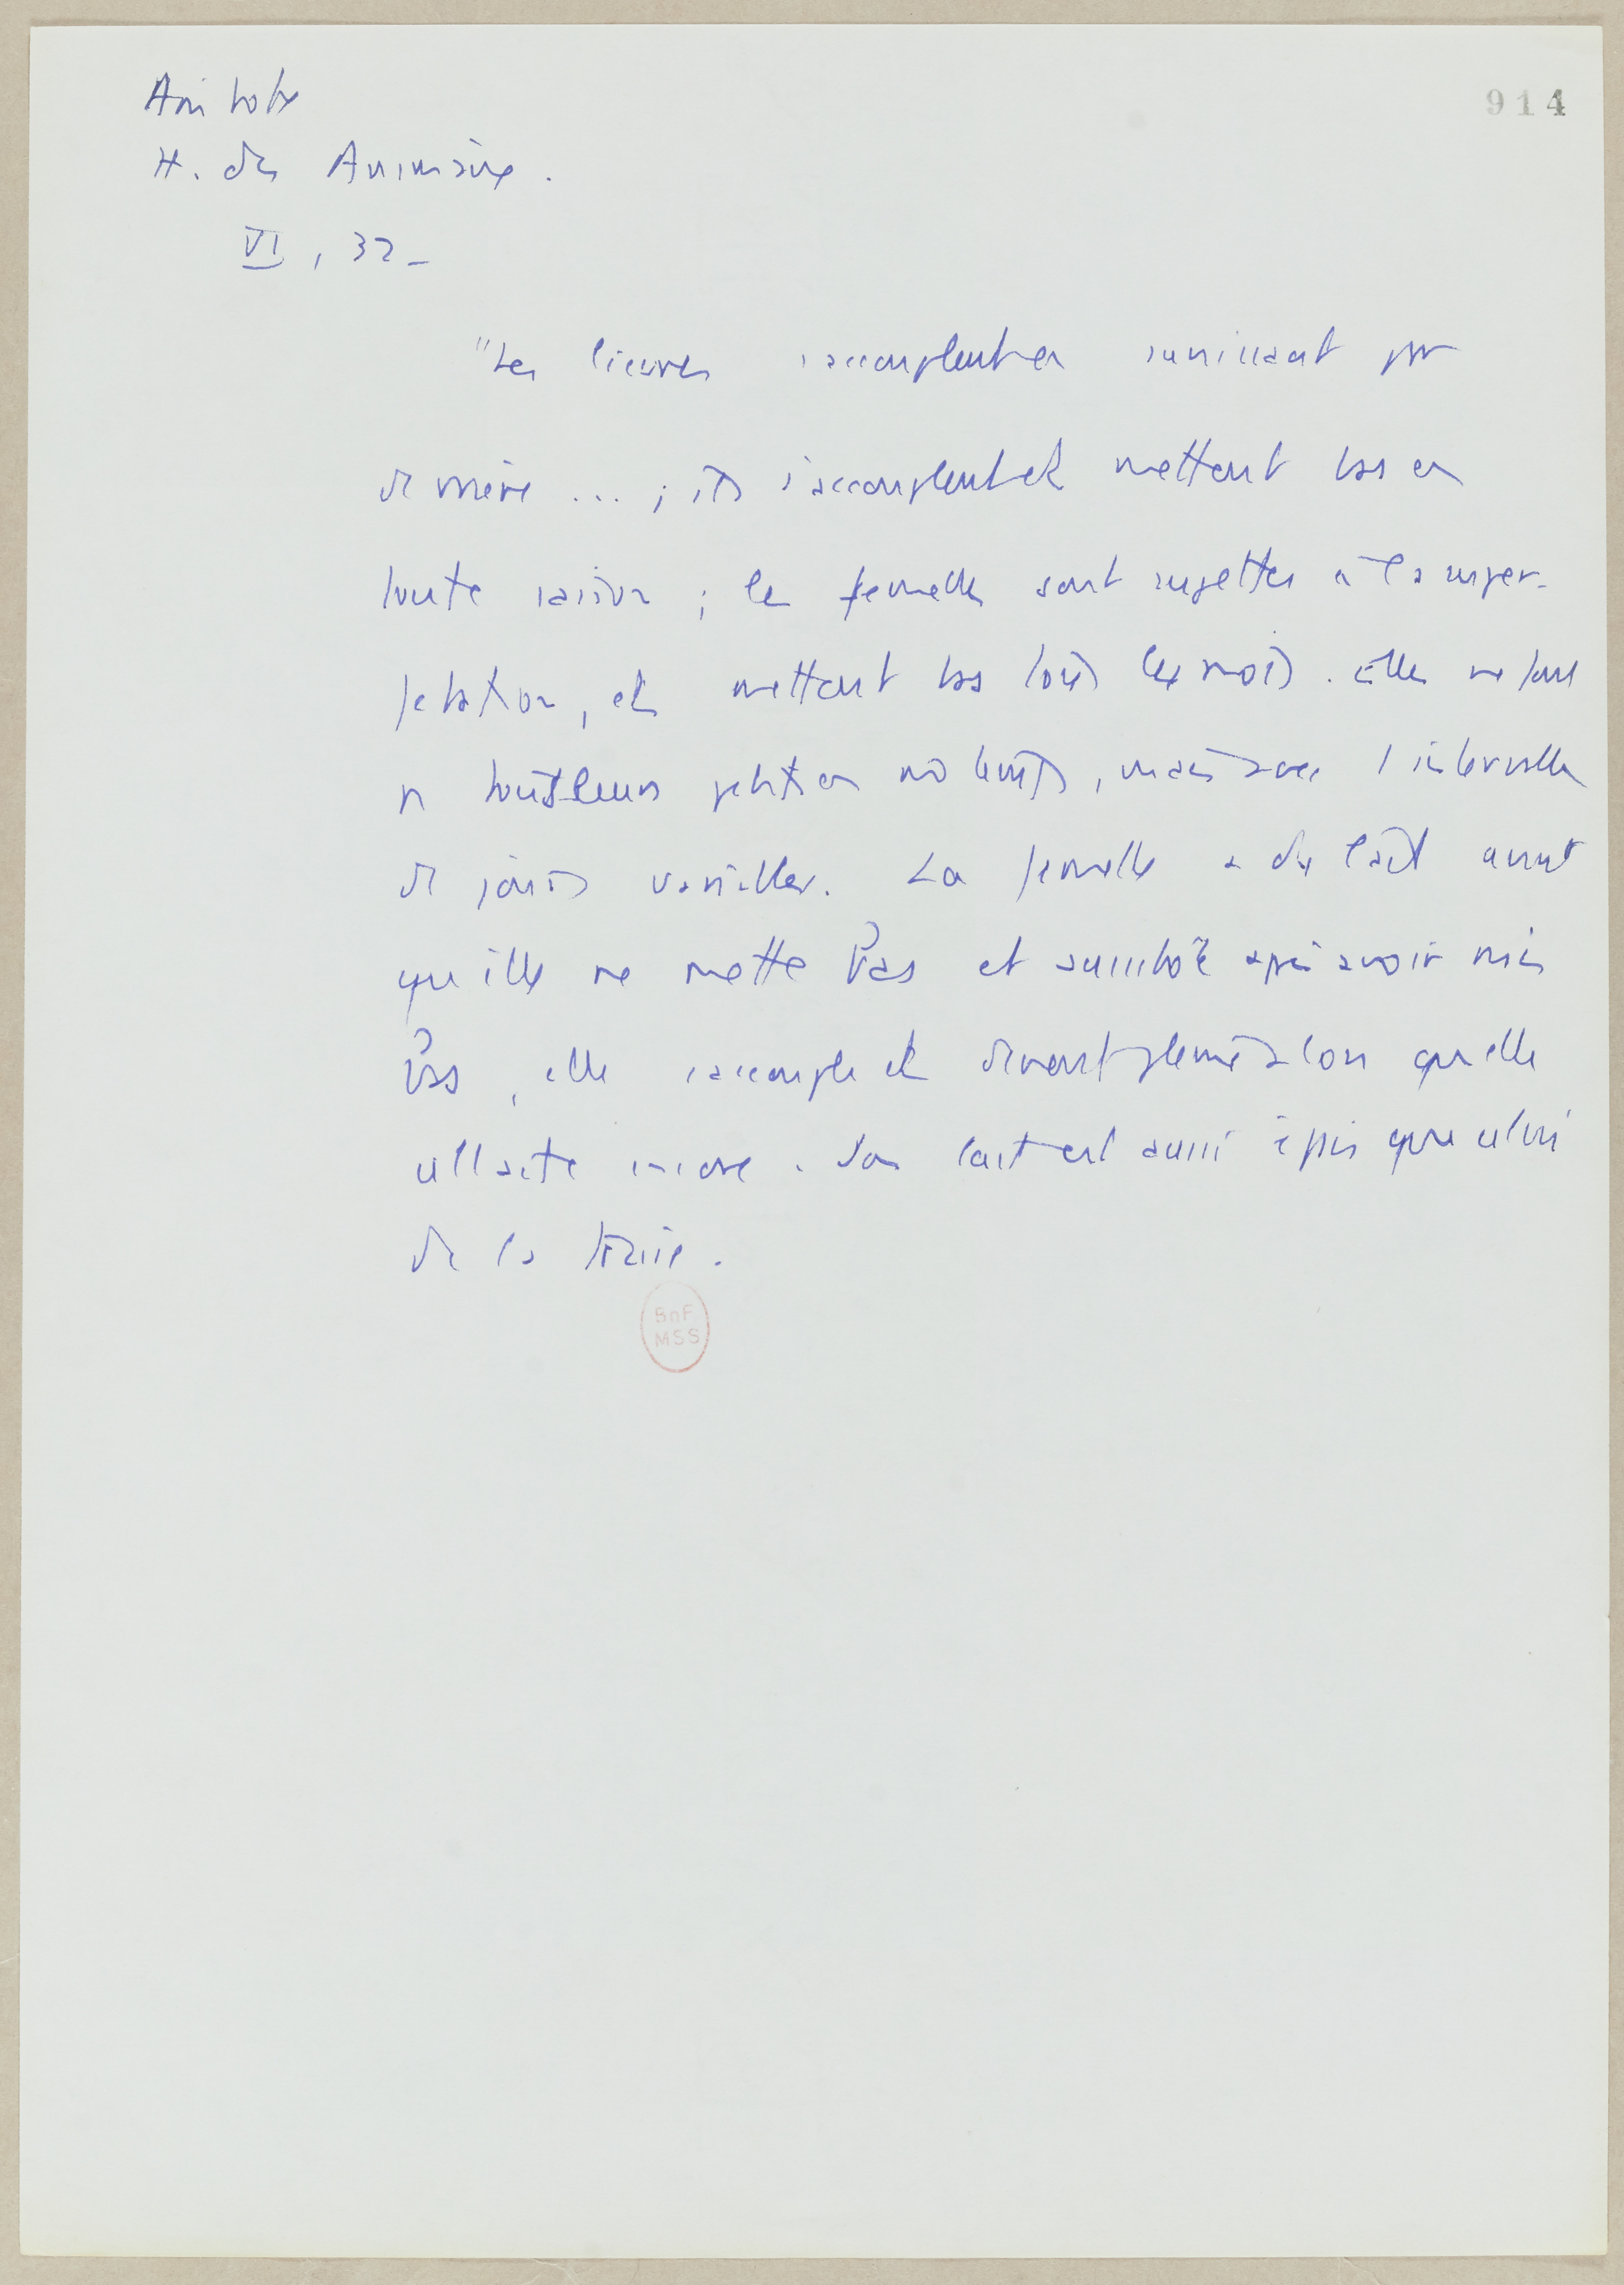 914
Aristote
H. des Animaux.
VI, 32 -
"Les lièvres s'accouplent en s'unissant par
derrière ... ; ils s'accouplent et mettent bas en
toute saison ; les femelles sont sujettes à la super-
fetation, et mettent bas tous les mois. Elles ne font
pas tous leurs petits en une fois, mais avec l'intervalle
de jours variables. La femelle a du lait avant
qu'elle ne mette bas et aussitôt après avoir mis
bas, elle s'accouple et devient pleine alors qu'elle
allaite encore. Son lait est aussi épais que celui
de la truie.
BnF
MSS